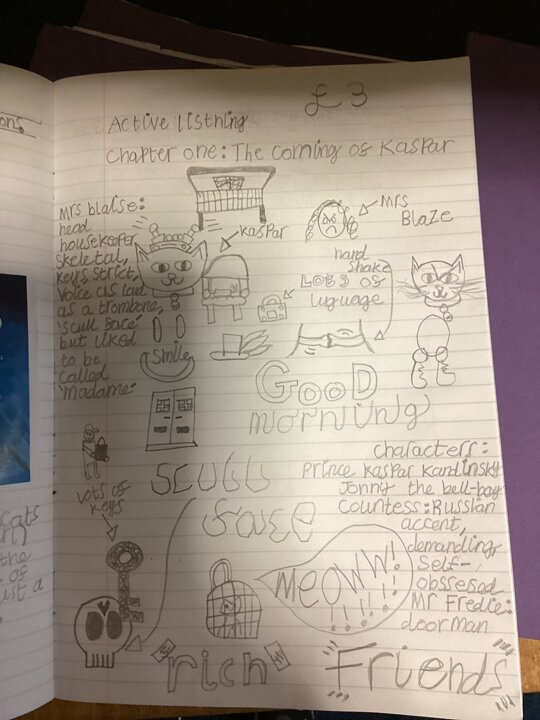 £3
Active listning
Chapter one: The coming of Kaspar
Mrs blaise:
head
housekeeper,
skeletal,
keys, strict,
voice as loud
as a trombone,
'scull face'
but liked
to be
called
'Madame'
Kaspar
Mrs
Blaze
hand
shake
Lots of
luguage
Smile
Good
morning
Lots of
keys
Scull
face
characters:
Prince Kaspar Kandinsky
Jonny the bell-boy
Countess: Russian
accent,
demanding,
self-
obsresed
Mr Fredie:
doorman
MEOWW!
!!!!!!
"rich"
Friends
ons
cats
the
of
ust a